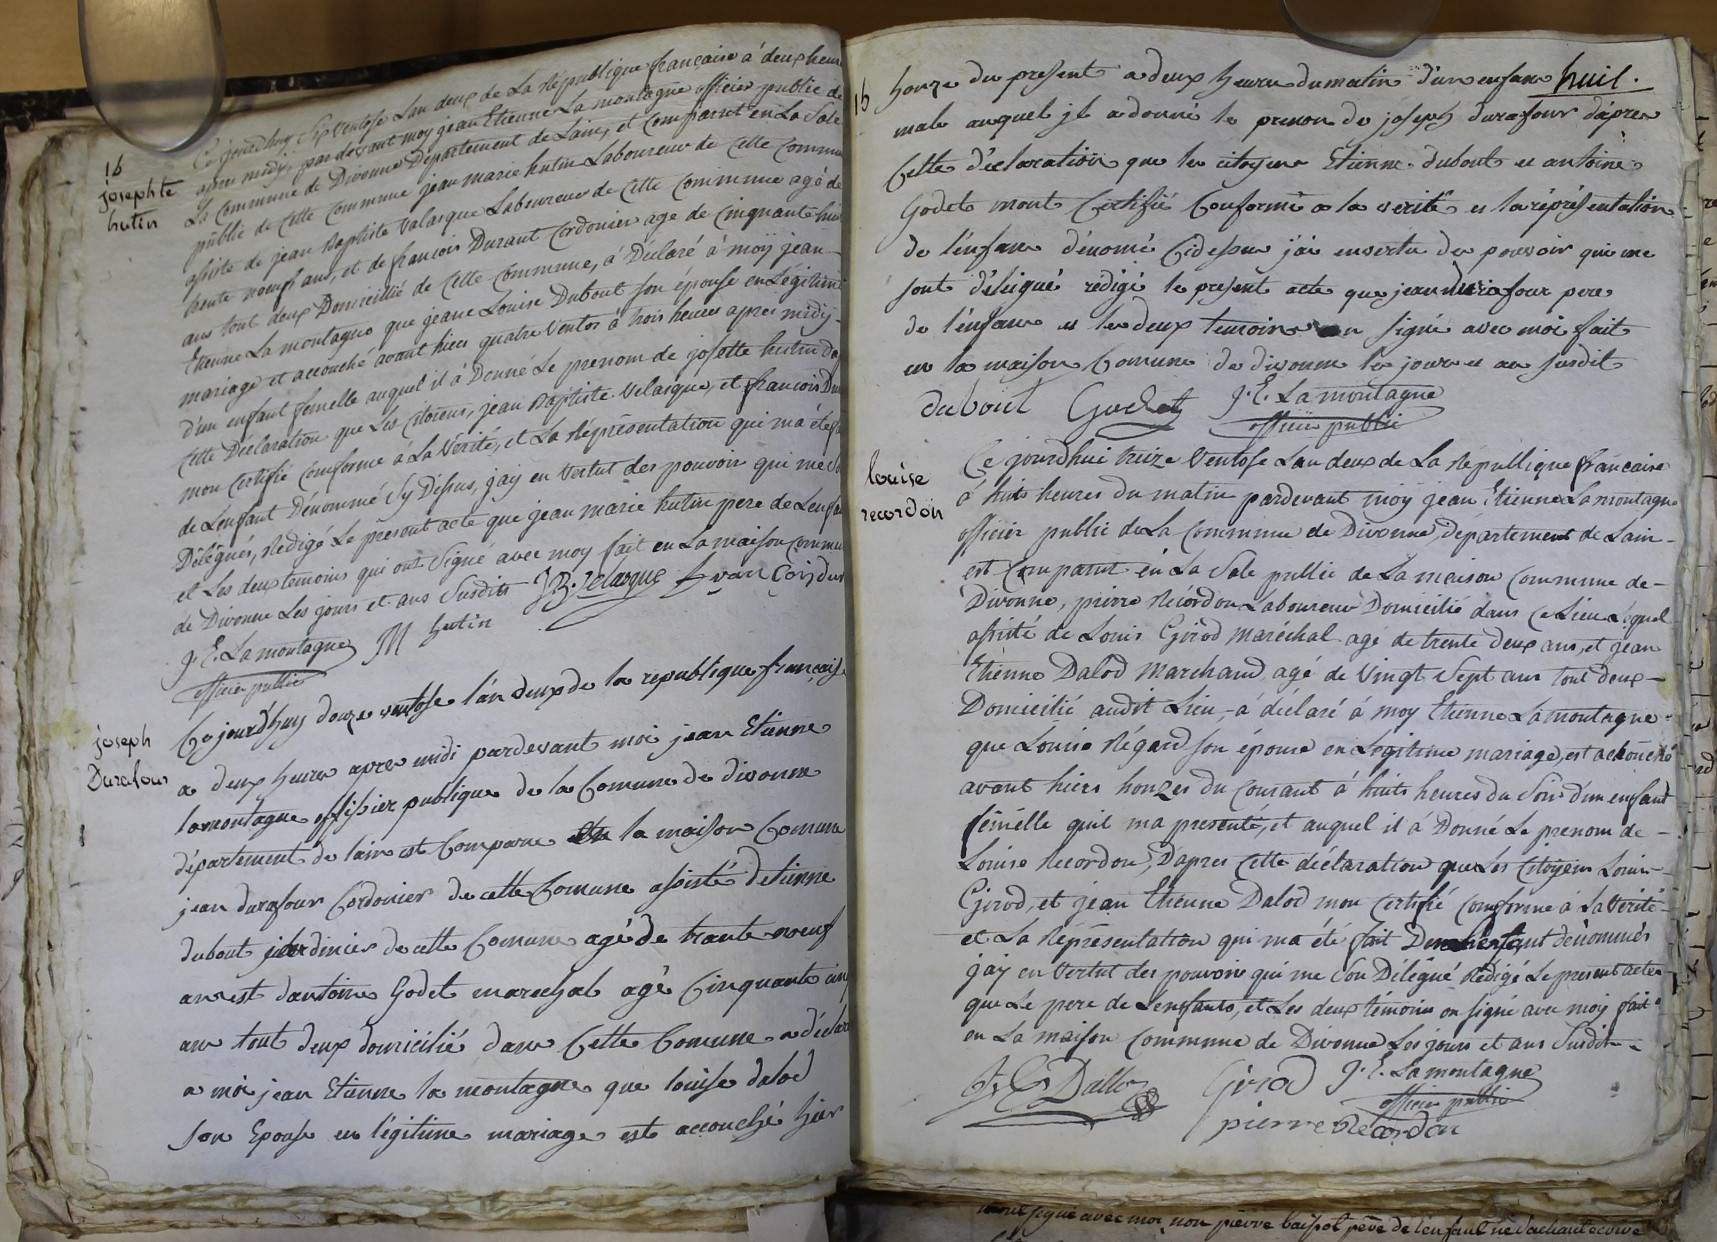 16
josephte
hutin
Ce jourdhuy Six Ventose Lan deux de La République française à deux heures
apres midy, pardevant moy jean Etienne La montagne officier public de
La Commune de Divonne Département de Lain, est Comparut en La Sale
public de Cette Commune jean marie hutin Laboureur de Cette Commune
assisté de jean Baptiste Valasque Laboureur de Cette Commune agé de
trente noeufs ans, et de francois Durant Cordonier age de Cinquante huit
ans tout deux Domicillié de Cette Commune, à Déclaré à moÿ jean
Etienne La montagne que jeane Louise Dubout son épouse en Légitime
mariage et accouché avant hiers quatre Ventos à trois heures apres midy
d'un enfant femelle auquel il à Donné Le prenom de josette hutin Dap
Cette Déclaration que Les Citoiens, jean Baptiste Velasque, et francois Du
mon Certifié Comforme à La Vérité, et La Représentation qui ma été fa
de Lenfant Dénommé Sy Dessus, jaÿ en Vertut des pouvoir qui me So
Délégués, Rédigé Le présent acte que jean marie hutin pere de Lenfa
et Les deux temoins qui ont Signé avec moy fait en La maison Commu
de Divonne Les jours et ans Susdits J B Velasque françois dur
J. E. La montagne M hutin
officier public
joseph
Durafour
Ce jourd'huy douze ventose l'an deux de la republique françaisse
a deux heures apres midi pardevant moi jean Etienne
lamontagne offissier publique de la Comune de divonne
département de lain est Comparu en la maison Comune
jean durafour Cordonier de cette Comune assisté detienne
dubout jardinier de cette Comune agé de trante noeuf
ans est dantoine Godet marechal agé Cinquante cinq
ans tout deux domicilié dans Cette Comune a déclaré
a moi jean Etienne la montagne que louise dalod
son Epouse en légitime mariage est accouché hier
16
honze du present a deux heures du matin d'un enfans huit.
male auquel jl a donné le prenom de joseph durafour d'apres
Cette déclaration que les citoyens Etienne dubout et antoine
Godet mont Certifié Conforme a la verité et la réprésentation
de lenfans dénomé Cidessus j'ai envertu des pouvoir qui me
sont déléigué rédigé le present acte que jean durafour pere
de lénfans et les deux temoins on signé avec moi fait
en la maison Comune de divonne les jours et an susdit
dubout Godet J. E. La montagne
officier public
louise
recordon
Ce jourdhui treize Ventose Lan deux de La République française
à huits heures du matin pardevant moÿ jean Etienne La montagne
officier public de La Commune de Divonne, Département de Lain -
est Comparut en La Sale public de La maison Commune de -
Divonne, pierre Récordon Laboureur Domicilié dans Ce Lieu Lequel
assisté de Louis Girod maréchal agé de trente deux ans, et jean
Etienne Dalod marchand agé de Vingt Sept ans tout deux -
Domicilié audit Lieu, à déclaré à moy Etienne La montagne -
que Louise Régard son épouse en Légitime mariage, est achouché
avant hiers honzes du Courant à huits heures du Soir d'un enfant
femelle quil ma presenté, et auquel il à Donné Le prenom de -
Louise Recordon, Dapres Cette déclaration que Les Citoyens Louis -
Girod, et jean Etienne Dalod mon Certifié Comforme à La Vérité -
et La Représentation qui ma été fait De Lenfant dénommés
jaÿ en Vertut des pouvoir qui me son Délégué Rédigé Le present acte
que Le pere de Lenffants, et Les deux temoins on signé avec moy fait
en La maison Commune de Divonne Les jours et ans Susdits -
J. E. Dallod Girod J. E. La montagne
officier public
pierre Recordon
signé avec moi non pierre père de l'enfant ne Sachant écrire